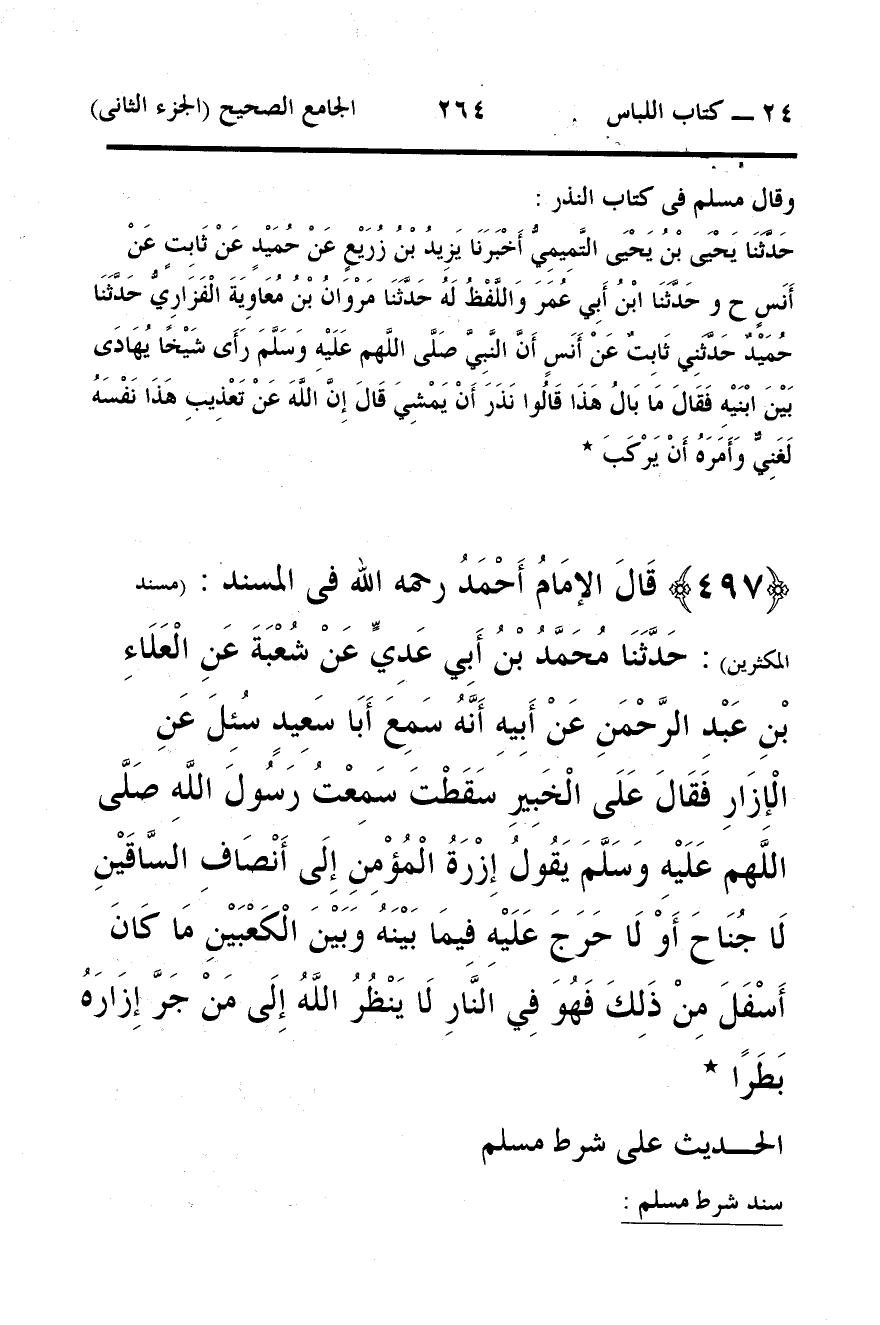 ٢٤ ــ كتاب اللباس ٢٦٤ الجامع الصحيح (الجزء الثانى)
وقال مسلم فى كتاب النذر :
حَدَّثَنَا يَحْيَى بْنُ يَحْيَى التَّمِيمِيُّ أَخْبَرَنَا يَزِيدُ بْنُ زُرَيْعٍ عَنْ حُمَيْدٍ عَنْ ثَابِتٍ عَنْ
أَنَسٍ ح و حَدَّثَنَا ابْنُ أَبِي عُمَرَ وَاللَّفْظُ لَهُ حَدَّثَنَا مَرْوَانُ بْنُ مُعَاوِيَةَ الْفَزَارِيُّ حَدَّثَنَا
حُمَيْدٌ حَدَّثَنِي ثَابِتٌ عَنْ أَنَسٍ أَنَّ النَّبِيَّ صَلَّى اللهم عَلَيْهِ وَسَلَّمَ رَأَى شَيْخًا يُهَادَى
بَيْنَ ابْنَيْهِ فَقَالَ مَا بَالُ هَذَا قَالُوا نَذَرَ أَنْ يَمْشِيَ قَالَ إِنَّ اللَّهَ عَنْ تَعْذِيبِ هَذَا نَفْسَهُ
لَغَنِيٌّ وَأَمَرَهُ أَنْ يَرْكَبَ *
﴿٤٩٧﴾ قَالَ الإمَامُ أَحْمَدُ رحمه الله فى المسند : (مسند
المكثرين) : حَدَّثَنَا مُحَمَّدُ بْنُ أَبِي عَدِيٍّ عَنْ شُعْبَةَ عَنِ الْعَلَاءِ
بْنِ عَبْدِ الرَّحْمَنِ عَنْ أَبِيهِ أَنَّهُ سَمِعَ أَبَا سَعِيدٍ سُئِلَ عَنِ
الْإِزَارِ فَقَالَ عَلَى الْخَبِيرِ سَقَطْتَ سَمِعْتُ رَسُولَ اللَّهِ صَلَّى
اللَّهم عَلَيْهِ وَسَلَّمَ يَقُولُ إِزْرَةُ الْمُؤْمِنِ إِلَى أَنْصَافِ السَّاقَيْنِ
لَا جُنَاحَ أَوْ لَا حَرَجَ عَلَيْهِ فِيمَا بَيْنَهُ وَبَيْنَ الْكَعْبَيْنِ مَا كَانَ
أَسْفَلَ مِنْ ذَلِكَ فَهُوَ فِي النَّارِ لَا يَنْظُرُ اللَّهُ إِلَى مَنْ جَرَّ إِزَارَهُ
بَطَرًا *
الحـــديث على شرط مسلم
سند شرط مسلم :